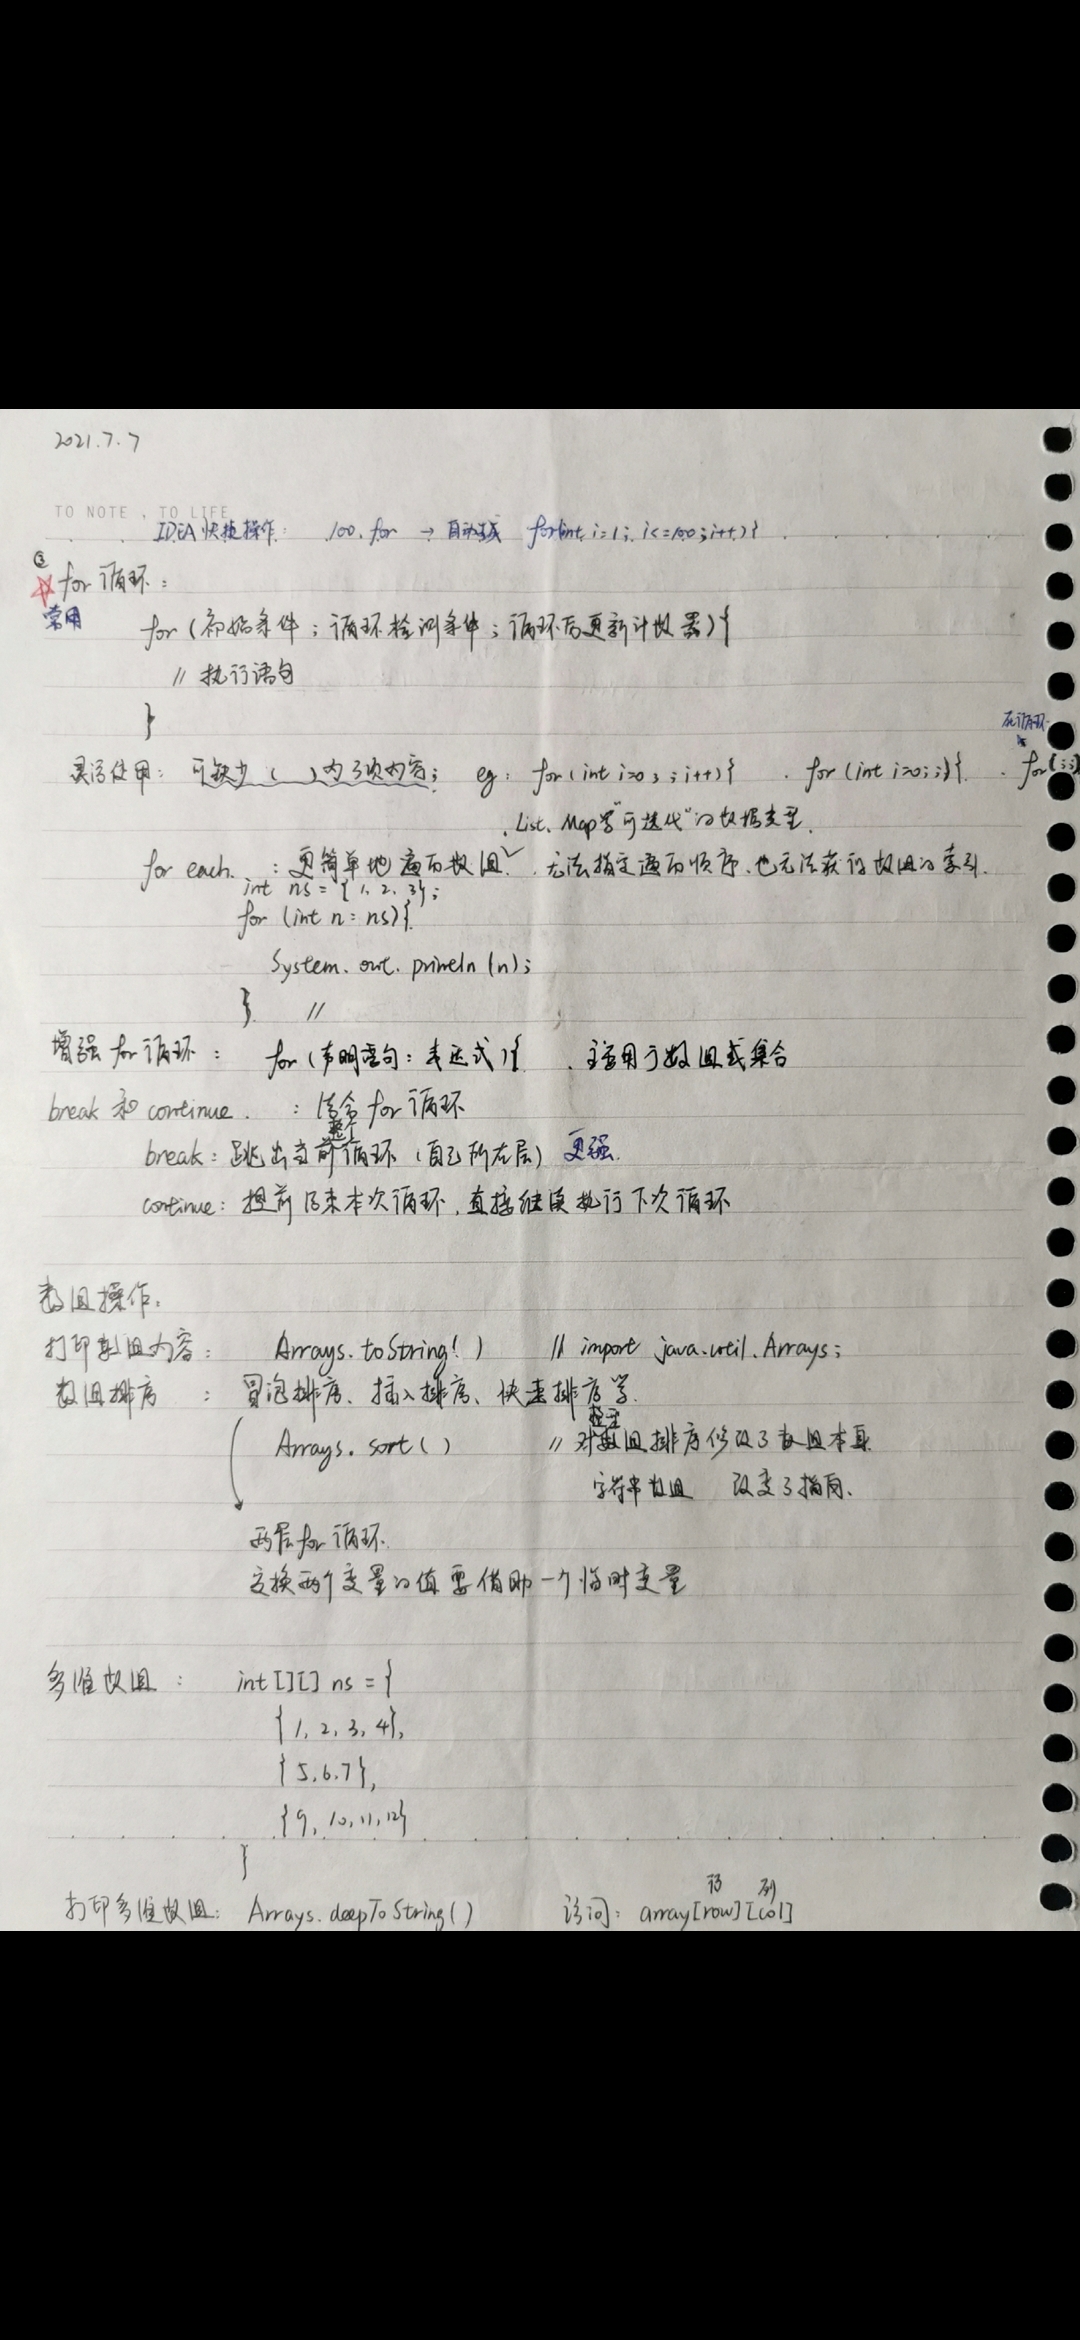 2021.7.7
TO NOTE , TO LIFE
IDEA 快捷操作: 100.for → 自动生成 for(int i=1; i<=100; i++){
③
for 循环:
常用
for (初始条件; 循环检测条件; 循环后更新计数器){
// 执行语句
}
死循环
灵活使用: 可缺少 ( ) 内3项内容; eg: for(int i=0; ; i++){ . for(int i=0;;){ . for(;;)
. List、Map等"可迭代"的数据类型.
for each. : 更简单地遍历数组, 无法指定遍历顺序, 也无法获得数组的索引.
int ns = { 1, 2, 3};
for (int n: ns){
System. out. println (n);
} //
增强 for 循环: for (声明语句: 表达式){ . 主要用于数组或集合
break 和 continue. : 结合 for 循环
整个
break: 跳出当前循环 (自己所在层) 更强.
continue: 提前结束本次循环, 直接继续执行下次循环
数组操作:
打印数组内容: Arrays.toString( ) // import java.util.Arrays;
数组排序 : 冒泡排序、插入排序、快速排序等.
Arrays. sort( ) // 对数组排序修改了数组本身
字符串数组 改变了指向.
两层 for 循环.
交换两个变量的值要借助一个临时变量
多维数组 : int [][] ns = {
{ 1, 2, 3, 4},
{ 5, 6, 7},
{9, 10, 11, 12}
}
行 列
打印多维数组: Arrays.deepToString( ) 访问: array[row][col]